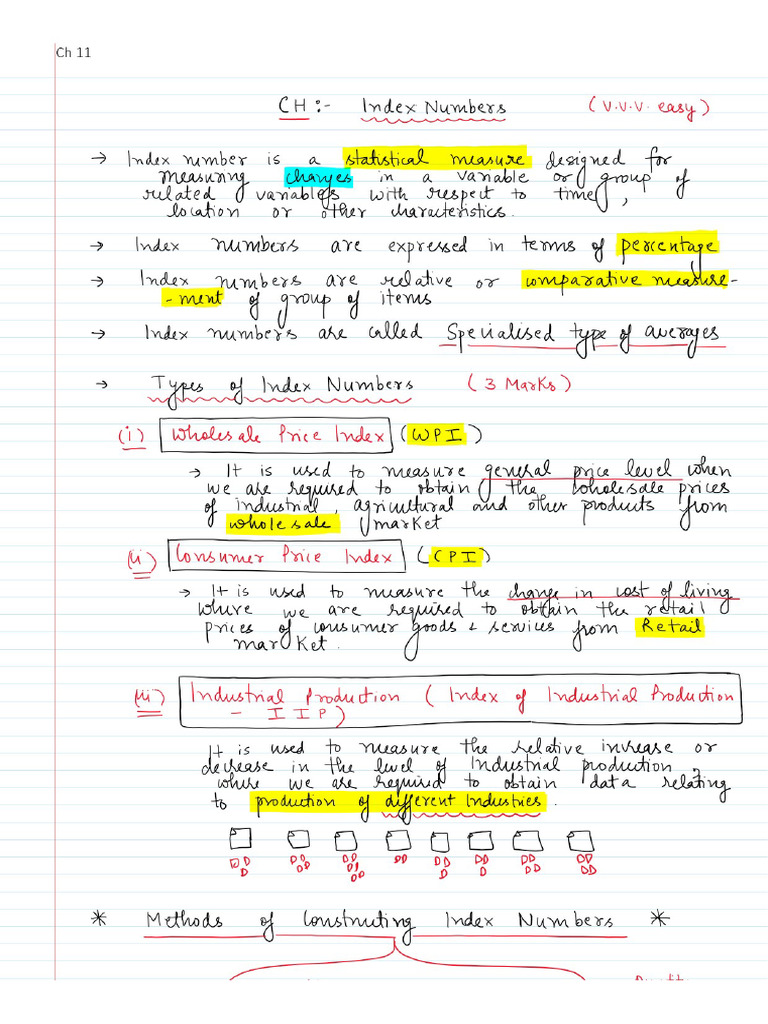 Ch 11
CH :- Index Numbers (V.V.V. easy)
→ Index number is a statistical measure designed for
measuring changes in a variable or group of
related variables with respect to time,
location or other characteristics.
→ Index numbers are expressed in terms of percentage
→ Index numbers are relative or comparative measure-
-ment of group of items
→ Index numbers are called Specialised type of averages
→ Types of Index Numbers (3 Marks)
(i) Wholesale Price Index (WPI)
→ It is used to measure general price level when
we are required to obtain the wholesale prices
of industrial, agricultural and other products from
wholesale market
(ii) Consumer Price Index (CPI)
→ It is used to measure the change in cost of living
where we are required to obtain the retail
prices of consumer goods & services from Retail
market.
(iii) Industrial Production (Index of Industrial Production
- IIP)
It is used to measure the relative increase or
decrease in the level of Industrial production,
where we are required to obtain data relating
to production of different Industries.
* Methods of Constructing Index Numbers *